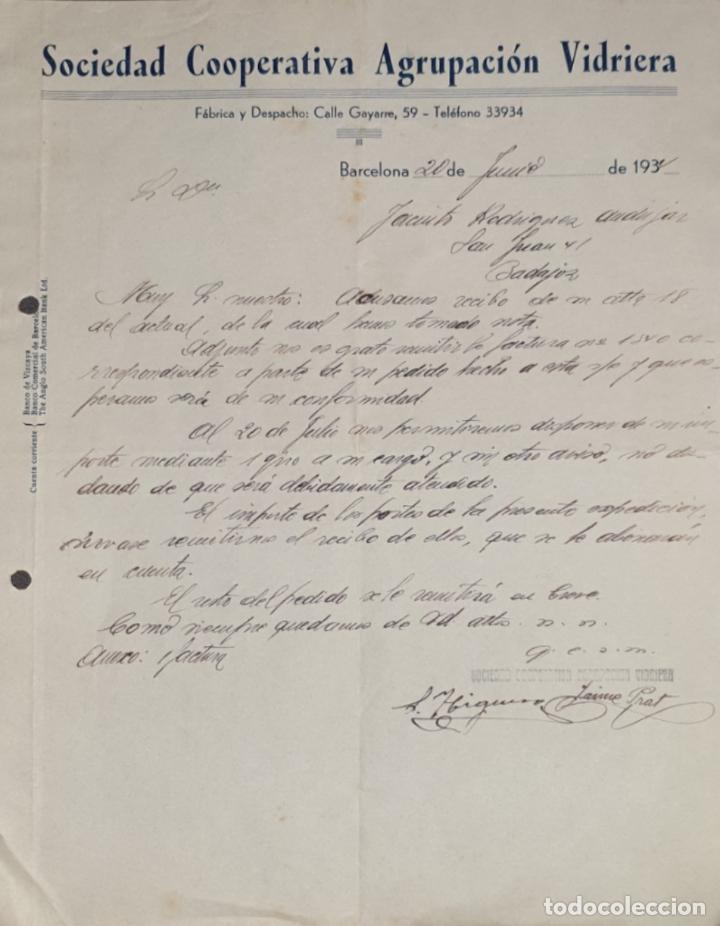 Sociedad Cooperativa Agrupación Vidriera
Fábrica y Despacho: Calle Gayarre, 59 - Teléfono 33934
Barcelona 20 de Junio de 1934
Sr. Dn.
Jacinto Rodriguez Andujar
San Juan 41
Badajoz
Muy Sr. nuestro: Acusamos recibo de su atta 18
del actual, de la cual hemos tomado nota.
Adjunto nos es grato remitirle factura nº co-
rrespondiente a parte de su pedido hecho a esta y que es-
peramos será de su conformidad.
Al 20 de Julio nos permitiremos disponer de su im-
porte mediante 1 giro a su cargo, y sin otro aviso, no du-
dando de que será debidamente atendido.
El importe de los portes de la presente expedición,
sirvase remitirnos el recibo de ellos, que se le abonarán
en cuenta.
El resto del pedido se le remitirá en breve.
Como siempre quedamos de Vd attos. s. s.
q. e. s. m.
Anexo: 1 factura
SOCIEDAD COOPERATIVA AGRUPACION VIDRIERA
Jaime Prat
Cuenta corriente { Banco de Vizcaya
Banco Comercial de Barcelona
The Anglo South American Bank Ltd.
todocoleccion